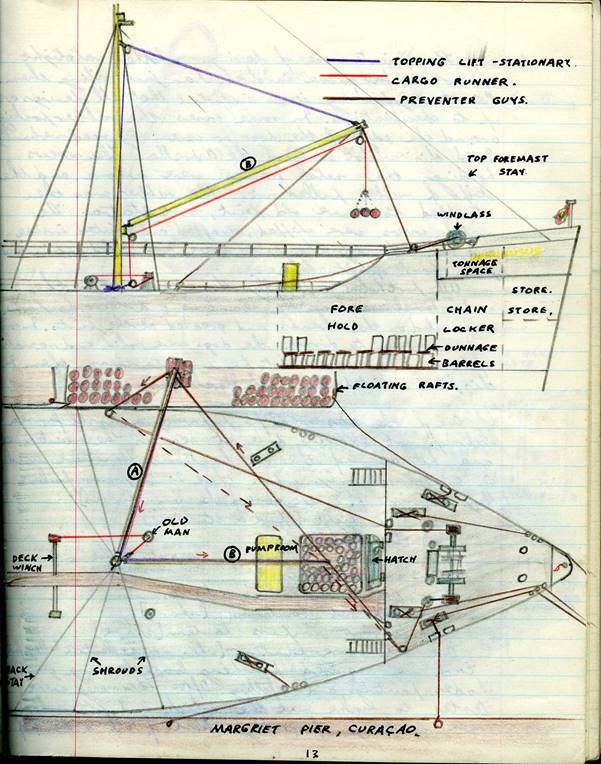 TOPPING LIFT - STATIONARY.
CARGO RUNNER.
PREVENTER GUYS.
B
TOP FOREMAST
STAY.
WINDLASS
TONNAGE
SPACE
STORE.
FORE
HOLD
CHAIN
LOCKER
STORE,
DUNNAGE
BARRELS
FLOATING RAFTS.
A
OLD
MAN
DECK
WINCH
B
PUMPROOM
HATCH
SHROUDS
STAY
MARGRIET PIER, CURAÇAO.
13